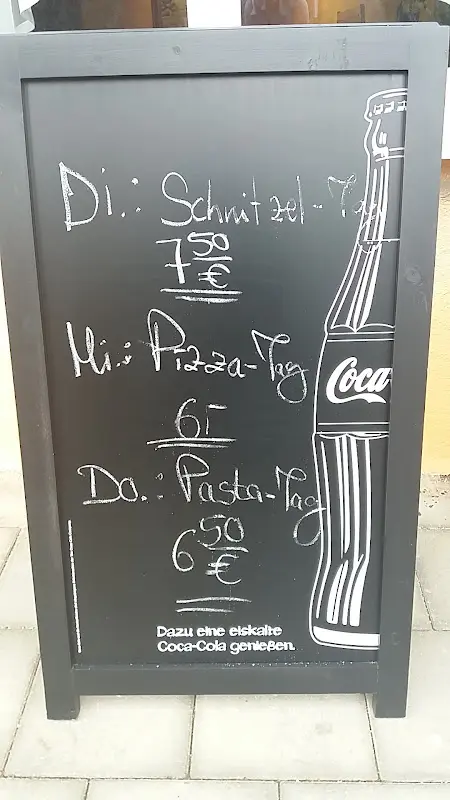 Di.: Schnitzel-Tag
7 50 €
Mi.: Pizza-Tag
6,-
Do.: Pasta-Tag
6 50 €
Coca
Dazu eine eiskalte
Coca-Cola genießen.